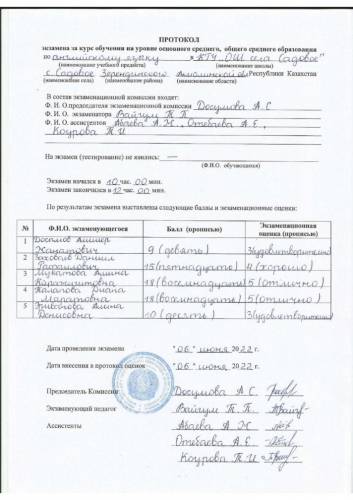 ПРОТОКОЛ
экзамена за курс обучения на уровне основного среднего, общего среднего образования
по английскому языку в КГУ "ОШ села Садовое"
(наименование учебного предмета) (наименование школы)
с. Садовое Зерендинского Акмолинской обл Республики Казахстан
(наименование села) (наименование района) (наименование области)
В состав экзаменационной комиссии входят:
Ф. И. О. председателя экзаменационной комиссии Досумова А С
Ф. И. О. экзаменатора Вайгум Т. П.
Ф. И. О. ассистентов Абаева А. Н., Отебаева А. Е.,
Коурова Т. И
На экзамен (тестирование) не явились: —
(Ф.И.О. обучающихся)
Экзамен начался в 10 час. 00 мин.
Экзамен закончился в 12 час. 00 мин.
По результатам экзамена выставлены следующие баллы и экзаменационные оценки:
№ Ф.И.О. экзаменующегося Балл (прописью) Экзаменационная оценка (прописью)
1 9 (девять) 3(удовлетворительно)
2 Даниил 15(пятнадцать) 4 (хорошо)
3 Алина 18(восемнадцать) 5 (отлично)
4 Маратовна 18(восемнадцать) 5 (отлично)
5 Алина Денисовна 10 (десять) 3(удовлетворительно)
Дата проведения экзамена "06" июня 2022 г.
Дата внесения в протокол оценок "06" июня 2022 г.
Председатель Комиссии Досумова А С.
Экзаменующий педагог Вайгум Т. П.
Ассистенты Абаева А. Н
Отебаева А. Е
Коурова Т. И